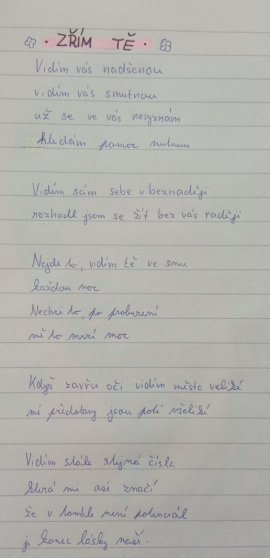 ZŘÍM TĚ
Vidím vás nadšenou
vidím vás smutnou
už se ve vás nevyznám
hledám pomoc nutnou
Vidím sám sebe v beznaději
rozhodl jsem se žít bez vás raději
Nejde to, vidím tě ve snu
každou noc
Nechci to, po probuzení
mě to mrzí moc
Když zavřu oči vidím místo veliké
mé představy jsou
Vidím stále stejná čísla
která mi asi značí
že v tomhle není potenciál
je konec lásky naší.